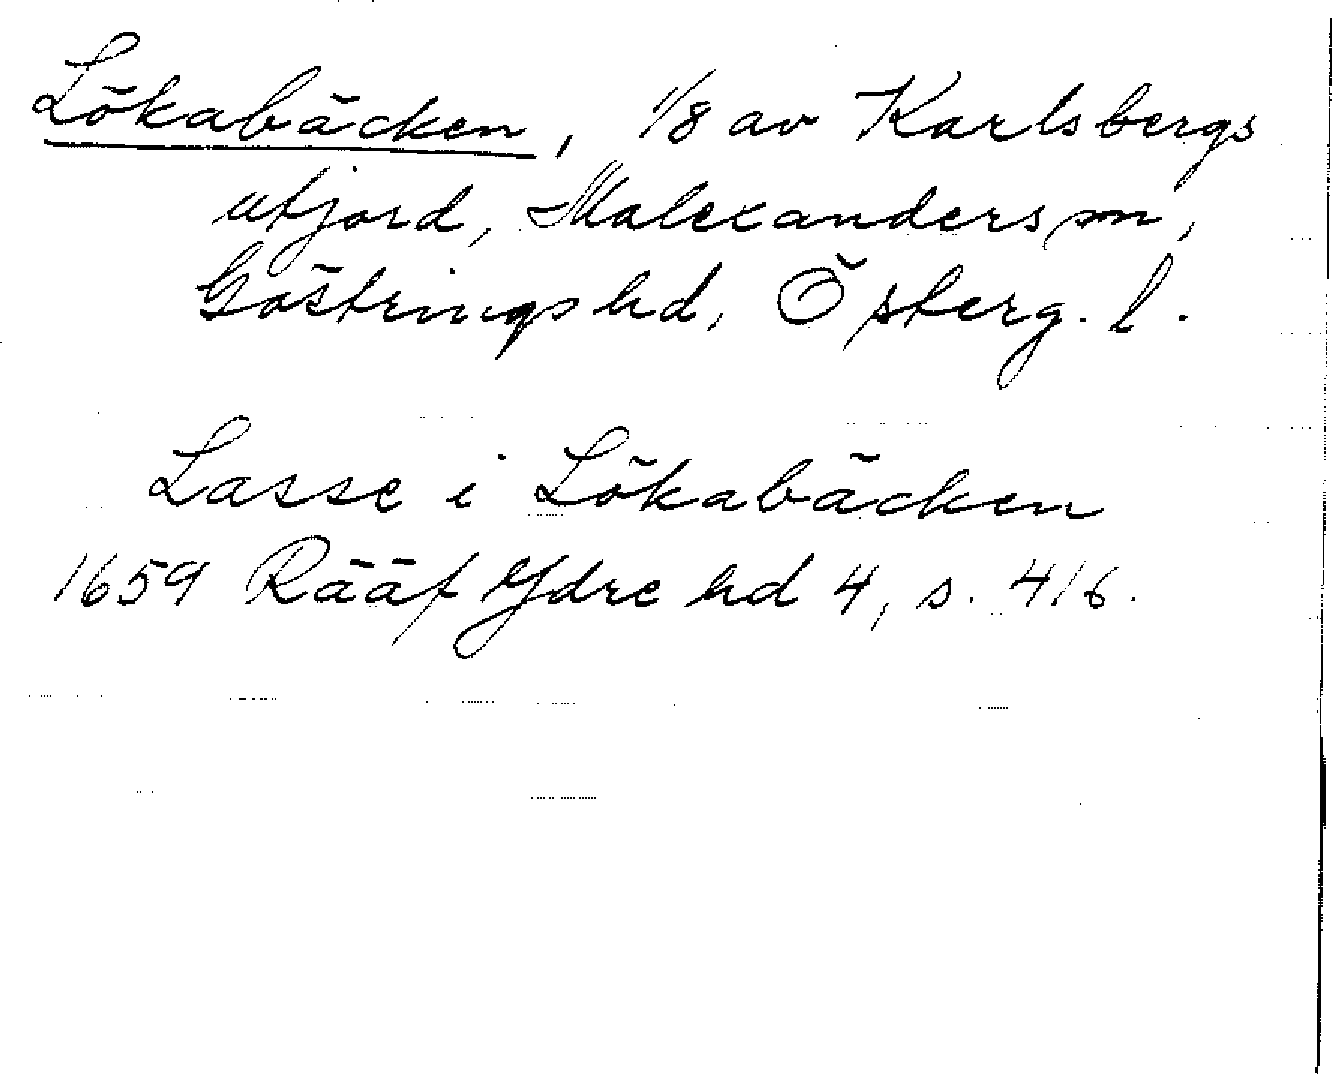 Lökabäcken, 1/8 av Karlsbergs
utjord, Malexanders sn,
Göstrings hd, Österg. l.
Lasse i Lökabäcken
1659 Rääf Ydre hd 4, s. 416.